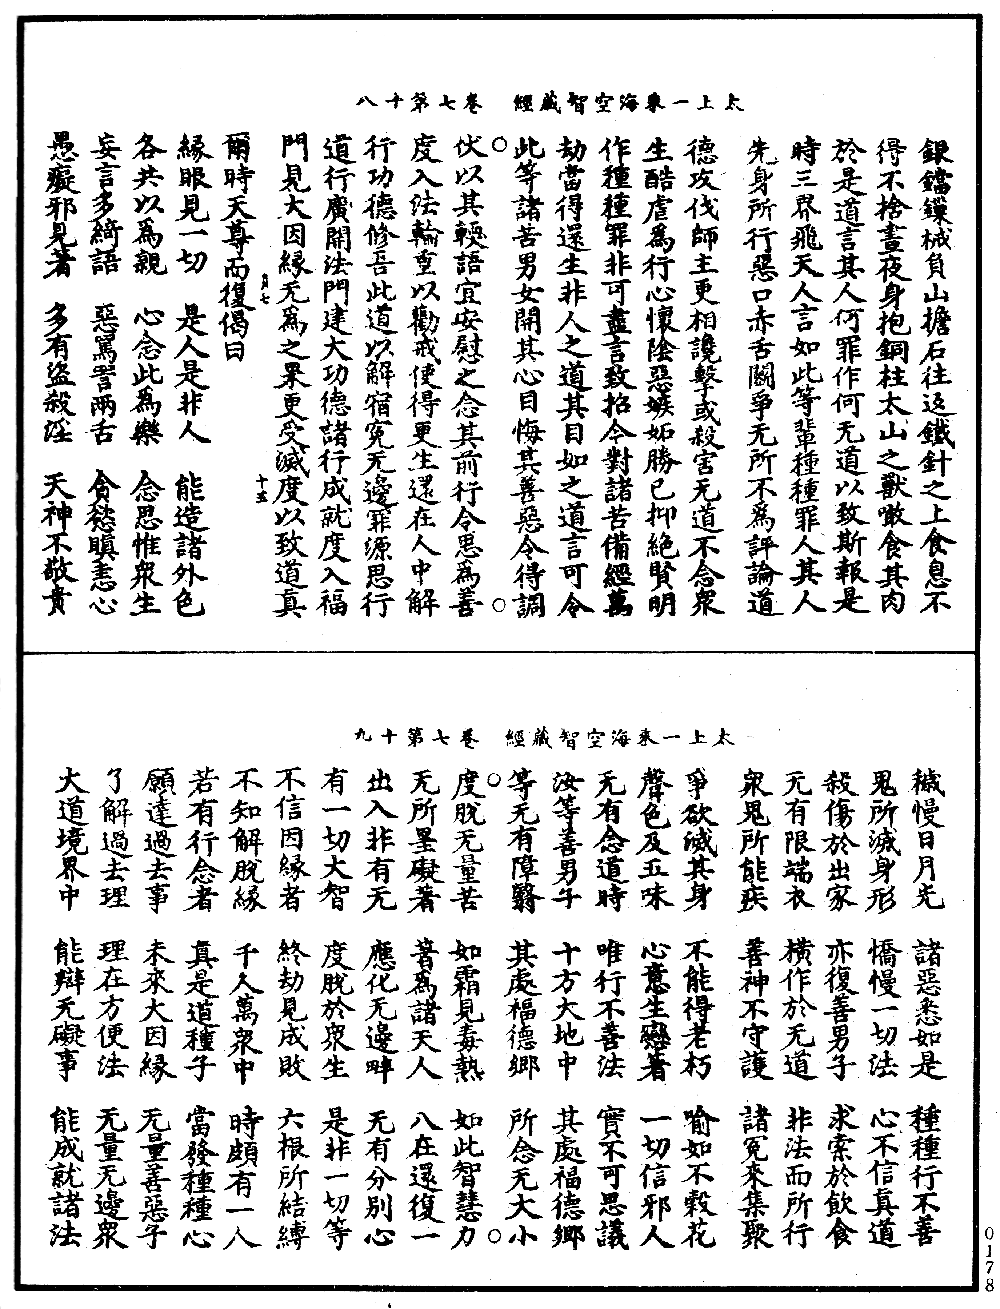 太上一乘海空智藏經　卷七第十八
銀鐺鏁械負山擔石往返鐵針之上食息不
得不捨晝夜身抱銅柱太山之獸噉食其肉
於是道言其人何罪作何无道以致斯報是
時三界飛天人言如此等輩種種罪人其人
先身所行惡口赤舌鬭爭无所不爲評論道
德攻伐師主更相讒擊或殺害无道不念衆
生酷虐爲行心懷陰惡嫉妬勝已抑絶賢明
作種種罪非可盡言致招今對諸苦備經萬
劫當得還生非人之道其目如之道言可令
此等諸苦男女開其心目悔其善惡令得調
伏以其輭語宜安慰之念其前行令思爲善
度入法輪重以勸戒使得更生還在人中解
行功德修吾此道以解宿寃无邊罪源思行
道行廣開法門建大功德諸行成就度入福
門見大因緣无爲之果更受滅度以致道真
月七　十五
爾時天尊而復偈曰
緣眼見一切　是人是非人　能造諸外色
各共以爲親　心念此爲樂　念思惟衆生
妄言多綺語　惡罵詈兩舌　貪慾瞋恚心
愚癡邪見著　多有盜殺淫　天神不敬責
太上一乘海空智藏經　卷七第十九
穢慢日月光　諸惡悉如是　種種行不善
鬼所滅身形　憍慢一切法　心不信真道
殺傷於出家　亦復善男子　求索於飲食
无有限端衣　橫作於无道　非法而所行
衆鬼所能疾　善神不守護　諸寃來集聚
爭欲滅其身　不能得老朽　喻如不穀花
聲色及五味　心意生戀著　一切信邪人
无有念道時　唯行不善法　實不可思議
汝等善男子　十方大地中　其處福德鄉
等无有障翳　其處福德鄉　所念无大小
度脫无量苦　如霜見毒熱　如此智慧力
无所罣礙著　著爲諸天人　八在還復一
出入非有无　應化无邊畔　无有分別心
有一切大智　度脫於衆生　是非一切等
不信因緣者　終劫見成敗　六根所結縛
不知解脫緣　千人萬衆中　時頗有一人
若有行念者　真是道種子　當發種種心
願達過去事　未來大因緣　无量善惡子
了解過去理　理在方便法　无量无邊衆
大道境界中　能辯无礙事　能成就諸法
0178